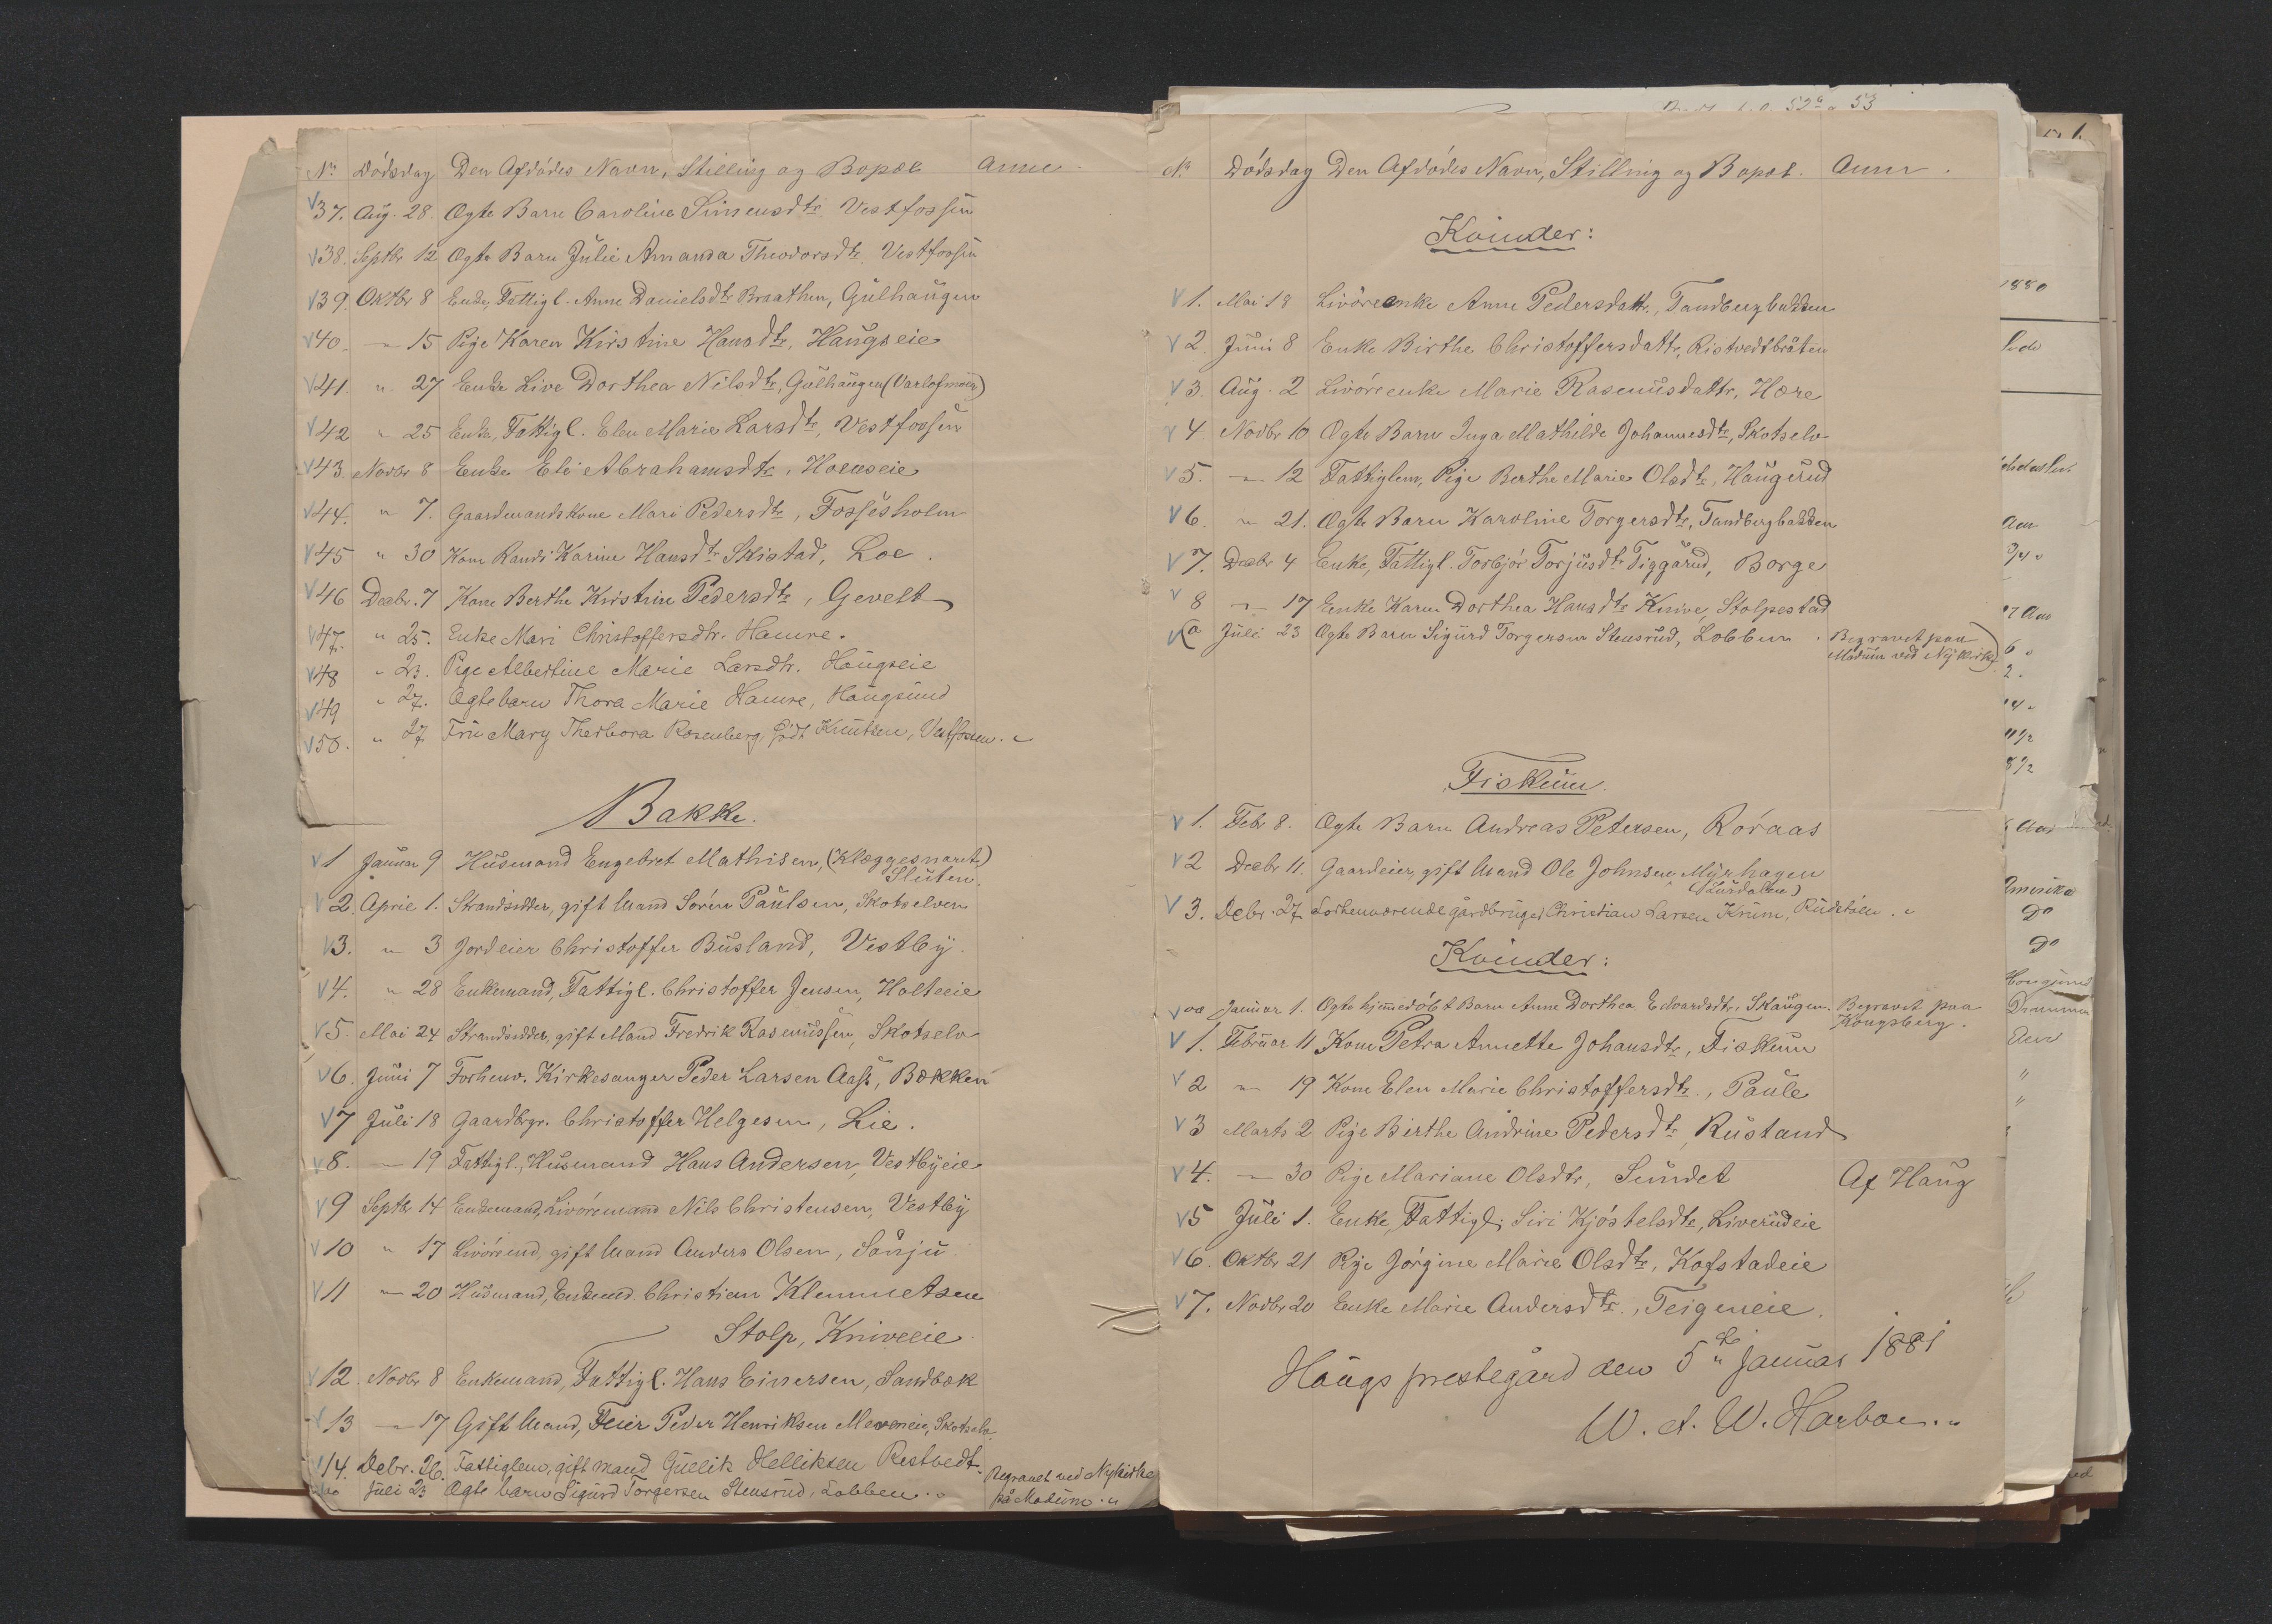 No Dødsdag Den Afdødes Navn, Stilling og Bopæl Anm
37. Aug. 28. Ægte Barn Caroline Simensdtr. Vestfossen
38. Septbr 12 Ægte Barn Julie Amanda Theodorsdtr. Vestfossen
39. Oktbr 8 Enke, Fattigl. Anne Danielsdtr Braathen, Gulhaugen
40. " 15 Pige Karen Kirstine Hansdtr, Haugseie
41. " 27 Enke Live Dorthea Nilsdtr, Gulhaugen
42 " 25 Enke, Fattigl. Elen Marie Larsdtr, Vestfossen
43. Novbr 8 Enke Eli Abrahamsdtr, Hoenseie
44. " 7. Gaardmandskone Mari Pedersdtr, Fossesholm
45 " 30 Kone Randi Karine Hansdtr Skistad, Loe.
46 Decbr. 7 Kone Berthe Kirstine Pedersdtr, Gevelt
47. " 25. Enke Mari Christoffersdtr. Hamre.
48 " 23. Pige Albertine Marie Larsdtr. Haugseie
49 " 27. Ægtebarn Thora Marie Hamre, Hougsund
50. " 27 Fru Mary Rosenberg født Knutsen, Vestfossen.
Bakke.
1 Januar 9 Husmand Engebret Mathisen,
Sluten.
2. April 1. Strandsidder, gift Mand Sørn Paulsen, Skotselven
3. " 3 Jordeier Christoffer Busland, Vestby.
4. " 28 Enkemand, Fattigl. Christoffer Jensen, Holteeie
5. Mai 24 Strandsidder, gift Mand Fredrik Rasmussen, Skotselv
6. Juni 7 Forhenv. Kirkesanger Peder Larsen Aass, Bakken
7 Juli 18 Gaardbgr. Christoffer Helgesen, Lie.
8. " 19 Fattigl., Husmand Hans Andersen, Vestbyeie
9 Septbr 14 Enkemand, Livøremand Nils Christensen, Vestby
10 " 17 Livørend, gift Mand Anders Olsen, Sånju
11 " 20 Husmand, Enkemd. Christian Klemmetsen
Stolp, Kniveeie
12 Novbr 8 Enkemand, Fattigl. Hans Einersen, Sandbæk
13 " 17 Gift Mand, Feier Peder Henriksen Skotselv.
14. Debr. 26. Fattiglem, gift mand Gullik Helliksen Restvedt.
Juli 23 Ægte barn Sigurd Torgersen Stensrud, Lobben. Begravet ved Nykirke
på Modum.
No Dødsdag Den Afdødes Navn, Stilling og Bopæl. Anm.
Kvinder:
1. Mai 18 Livøreenke Anne Pedersdatt., Tandbergbakken
2. Juni 8 Enke Birthe Christoffersdattr, Ristvedtbråten
3. Aug. 2 Livørenke Marie Rasmusdattr, Hære
4. Novbr 10 Ægte Barn Inga Mathilde Johannesdtr, Skotselv
5. " 12 Fattiglem, Pige Berthe Marie Olsdtr, Haugerud
6. " 21. Ægte Barn Karoline Torgersdtr, Tandbergbakken
7. Decbr 4 Enke, Fattigl. Torbjør Torjusdtr Tiggarud, Borge
8 " 17 Enke Karen Dorthea Hansdtr Knive, Stolpestad
a Juli 23 Ægte Barn Sigurd Torgersen Stensrud, Lobben. Begravet paa
Modum ved Nykirke)
Fiskum.
1. Febr 8. Ægte Barn Andreas Petersen, Røraas
2 Decbr 11. Gaardeier, gift Mand Ole Johnsen Myrhagen
3. Debr. 27. Forhenværende gårdbruger Christian Larsen Krum,
Kvinder:
Januar 1. Ægte hjemmedøbt Barn Anne Dorthea Edvardsdtr, Skaugen. Begravet paa
Kongsberg.
1. Februar 11 Kone Petra Annette Johansdtr, Fiskum
2 " 19 Kone Elen Marie Christoffersdtr., Paule
3 Marts 2 Pige Birthe Andrine Pedersdtr, Rustand
4. " 30 Pige Mariane Olsdtr, Sundet Af Haug
5 Juli 1. Enke, Fattigl. Siri Kjøstelsdtr, Liverudeie
6. Oktbr 21 Pige Jørgine Marie Olsdtr, Kofstadeie
7. Novbr 20 Enke Marie Andersdtr., Teigeneie.
Haugs prestegård den 5te Januar 1881
W. A. W. Harboe.
1880
Amerika
Do
Do